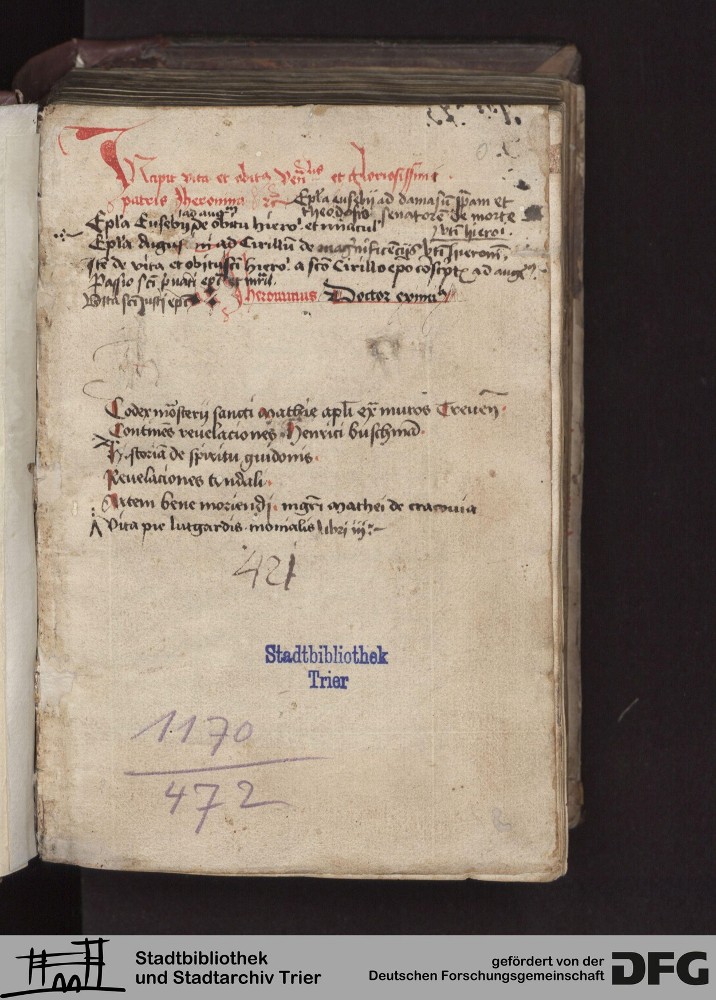 Incipit vita et obitus et gloriosissimi
patris Jheronimi Epla eusebij ad damasu et
theodosiu senatorem de morte
Epla Eusebij de obitu hiero et miracul
bti hieroi.
Epla Augus ni ad Cirillu de magnificecijs bti Jeronimi
Ite de vita et obitu sci hiero a sco Cirillo epo coscript ad auge
Passio sci
Vita sci justi epi Jheronimus Doctor eximi
Codex mosterij sancti Mathie apli ex muros Treueren
Continens reuelaciones Henrici buschma
Historia de spiritu guidonis
Reuelaciones tundali
Artem bene moriendi mgri Mathei de cracouia
Vita pie lutgardis monialis libri iij
421
Stadtbibliothek
Trier
1170
472
Stadtbibliothek
und Stadtarchiv Trier
gefördert von der
Deutschen Forschungsgemeinschaft DFG